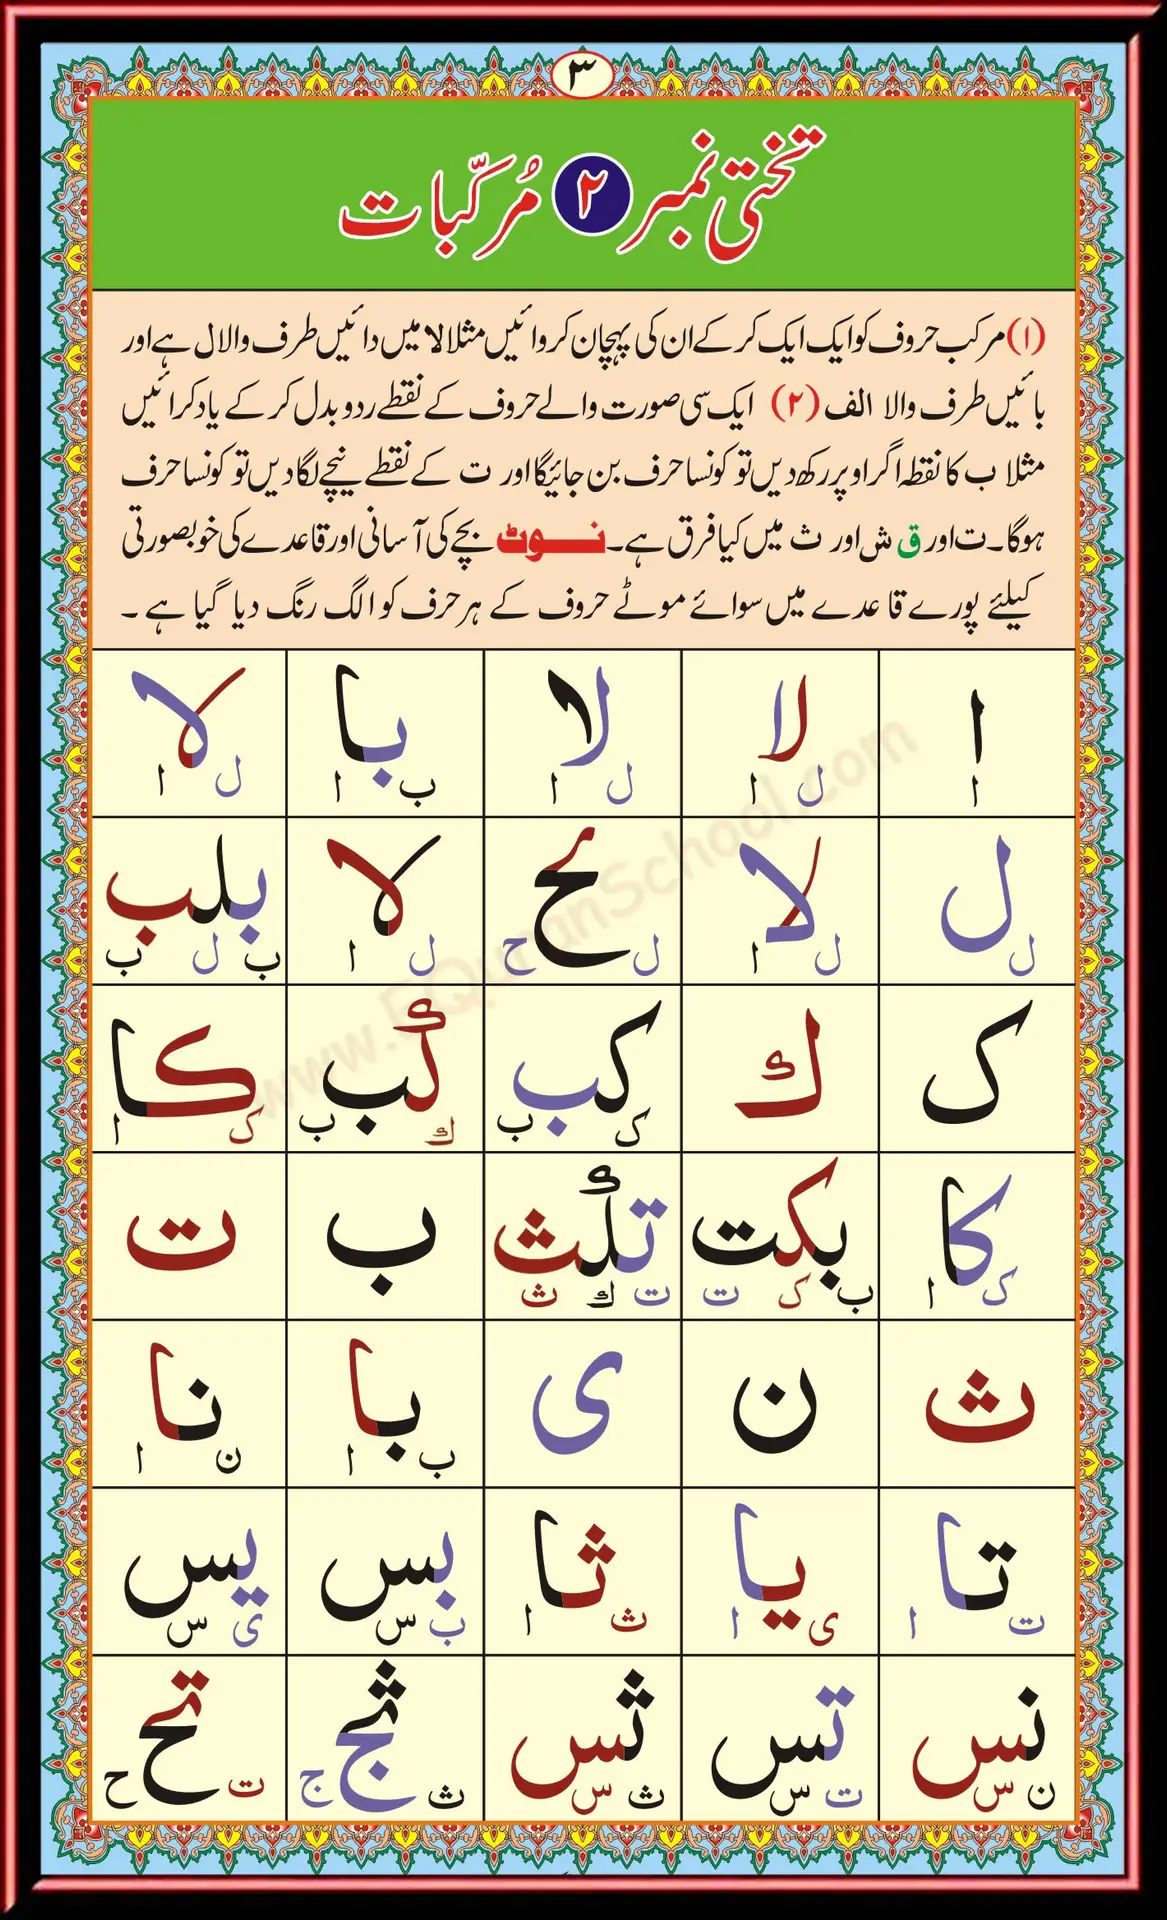 ۳
تختی نمبر ۲ مُرکّبات
(۱) مرکب حروف کو ایک ایک کر کے ان کی پہچان کروائیں مثلا لا میں دائیں طرف والا ل ہے اور
بائیں طرف والا الف (۲) ایک سی صورت والے حروف کے نقطے ردو بدل کر کے یاد کرائیں
مثلا ب کا نقطہ اگر اوپر رکھ دیں تو کونسا حرف بن جائیگا اور ت کے نقطے نیچے لگا دیں تو کونسا حرف
ہوگا۔ ت اور ق ش اور ث میں کیا فرق ہے۔ نوٹ بچے کی آسانی اور قاعدے کی خوبصورتی
کیلئے پورے قاعدے میں سوائے موٹے حروف کے ہر حرف کو الگ رنگ دیا گیا ہے ۔
ا لا لا با لا
ا ل ا ل ا ب ا ل ا
ل لا لح لا بلب
ل ل ا ل ح ل ا ب ل ب
ک ك کب كب کا
ک ب ك ب ک ا
کا بکت تلث ب ت
ک ا ب ک ت ت ك ث
ث ن ی با نا
ب ا ن ا
تا یا ثا بس یس
ت ا ی ا ث ا ب س ی س
نس تس ثس ثج تح
ن س ت س ث س ث ج ت ح
www.EQuranSchool.com